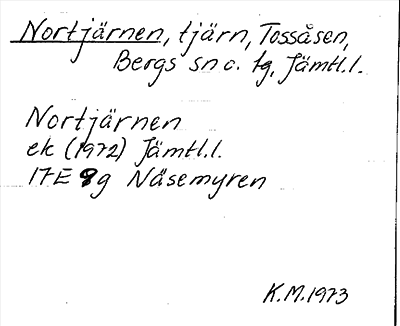 Nortjärnen, tjärn, Tossåsen,
Bergs sn o. tg, Jämtl.l.
Nortjärnen
ek (1972) Jämtl.l.
17E 9g Näsemyren
K.M.1973